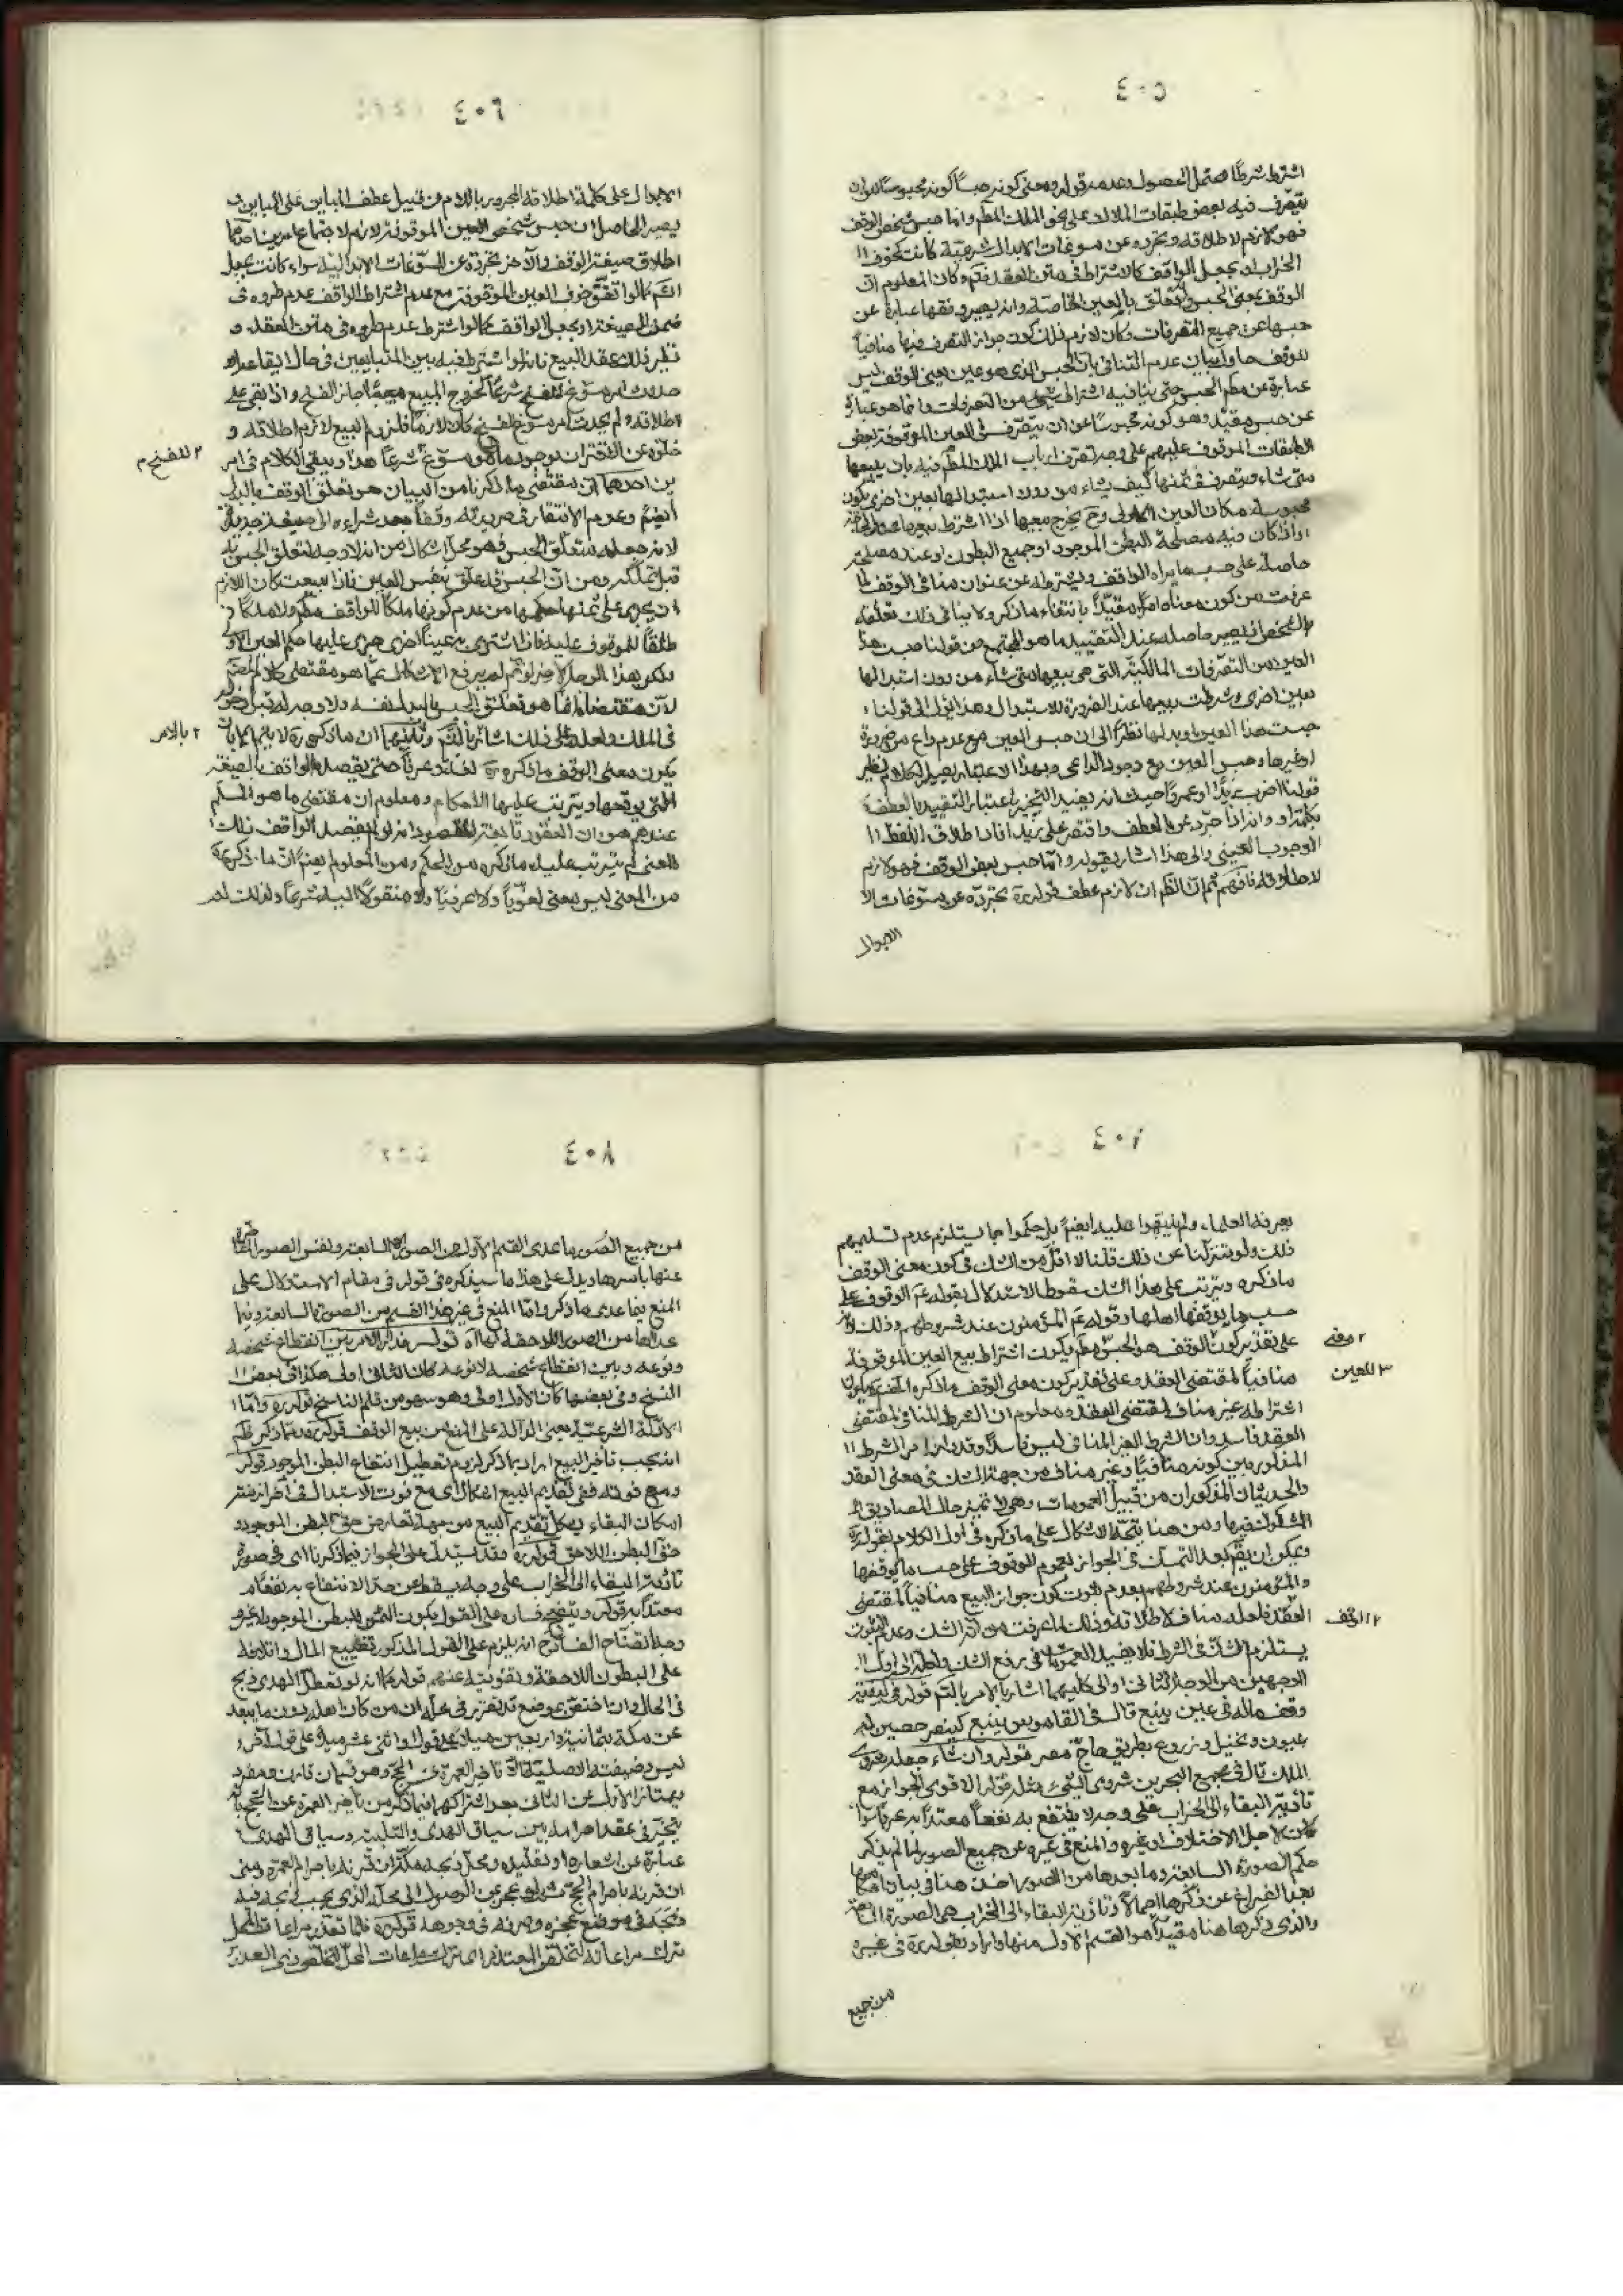 ٤٠٥
اشترط شرطاً محتمل الحصول وعدمه قوله ومعنى كونه حبساً كونه محبوساً لان
يتصرف فيه بعض طبقات الملاك على نحو الملك المطلق واما حبس شخص الوقف
فهو لازم لاطلاقه وتجرده عن مسوغات الابدال شرعية كانت كخوف ا
الخراب او بجعل الواقف كالاشتراط في متن العقد فتم وكان المعلوم ان
الوقف بمعنى الحبس والمتعلق بالعين الخاصة وانه يصير وقفها عبارة عن
حبسها عن جميع التصرفات وكان لازم ذلك كون جواز التصرف فيها منافياً
للوقف حاول بيان عدم التنافي بان الحبس الذي هو عين معنى الوقف ليس
عبارة عن مطلق الحبس حتى ينافيه اشتراط شيء من التصرفات وانما هو عبارة
عن حبس مقيد وهو كونه محبوساً عن ان يتصرف في العين الموقوفة بعض
الطبقات الموقوف عليهم على وجه تصرف ارباب الملك المطلق فيه بان يبيعها
متى شاء ويتصرف في ثمنها كيف يشاء من دون استبدالها بعين اخرى يكون
محبوسة مكان العين الاولى وح يخرج بيعها اذا اشترط بيعها عند الحاجة
او اذا كان فيه مصلحة البطن الموجود او جميع البطون او عند مصلحة
حاصلة على حسب ما يراه الواقف ويشترطه عن عنوان منافي الوقف لما
عرفت من كون معناه امراً مقيداً بانتفاء ما ذكر ولا ينافي ذلك تعلقه
بالشخص اذ يصير حاصله عند التقييد ما هو المجتمع من قولنا حبست هذا
العين من التصرفات المالكية التي هي بيعها متى شاء من دون استبدالها
بعين اخرى وشرطت بيعها عند الضرورة للاستبدال وهذا يؤل الى قولنا
حبست هذا العين او بدلها نظراً الى ان حبس العين مع عدم داع من ضرورة
او غيرها وحبس العين مع وجود الداعي وبهذا الاعتبار يصير الكلام نظير
قولنا اضرب زيداً او عمرواً حيث انه يفيد التخيير باعتبار التقييد بالعطف
بكلمة او وانه اذا جرد عن العطف واقتصر على زيد افاد اطلاق اللفظ ا
الوجوب العيني والى هذا اشار بقوله واما حبس بعض الوقف فهو لازم
لاطلاقه فافهم ثم ان الظم ان لازم عطف قوله ره تجرده عن مسوغات الا
الابدال
٤٠٦
الابدال على كلمة اطلاقه المجرور باللام من قبيل عطف المباين على المباين و
يصير الحاصل ان حبس شخص العين الموقوفة لازم لاجتماع امرين احدهما
اطلاق صيغة الوقف والآخر تجرده عن المسوغات الابدالية سواء كانت بجعل
الشم كما لو اتفق خوف العين الموقوفة مع عدم اشتراط الواقف عدم طروه في
ضمن الصيغة او بجعل الواقف كما لو اشترط عدم طروه في متن العقد و
نظير ذلك عقد البيع فانه لو اشترط فيه بين المتبايعين في حال ايقاعه او
حدوث امر مسوغ للفسخ شرعاً كخروج المبيع معيباً جاز الفسخ واذا بقي على
اطلاقه ولم يحدث امر مسوغ للفسخ كان لازماً فلزوم البيع لازم اطلاقه و
خلوه عن الاقتران بوجود ما هو مسوغ شرعاً هذا ويبقى الكلام في امر
٢ للفسخ م
ين احدهما ان مقتضى ما ذكرنا من البيان هو تعلق الوقف بالبدل
ايضم وعدم الافتقار في صيرورته وقفاً بعد شراءه الى صيغة جديدة
لانه جعله متعلق الحبس فهو محل اشكال من انه لا وجه لتعلق الحبس به
قبل تملكه ومن ان الحبس قد علق بنفس العين فاذا بيعت كان اللازم
ان يجري على ثمنها حكمها من عدم كونها ملكاً للواقف مطم ولا ملكاً
طلقاً للموقوف عليه فاذا اشترى به عيناً اخرى جرى عليها حكم العين الاو
ولكن هذا الوجه الاخير لو تم لم يرفع الاشكال عما هو مقتضى كلام المص
لان مقتضاه انما هو تعلق الحبس بالبدل نفسه ولا وجه له قبل دخوله
في الملك ولعله على ذلك اشار بالتم وثانيهما ان ما ذكره ره لا يتم الا بان
٢ بالامر
يكون معنى الوقف ما ذكره ره لغة او عرفاً حتى يقصده الواقف بالصيغة
التي يوقعها ويترتب عليها الاحكام ومعلوم ان مقتضى ما هو المسلم
عندهم هو ان العقود تابعة للقصود انه لو لم يقصد الواقف ذلك ا
المعنى لم يترتب عليه ما ذكره من الحكم ومن المعلوم ايضم ان ما ذكره
من المعنى ليس معنى لغوياً ولا عرفياً ولا منقولاً اليه شرعاً ولذلك لم
٤٠٧
يعرفه العلماء ولم ينبهوا عليه ايضم بل حكموا بما يستلزم عدم تسليمهم
ذلك ولو تنزلنا عن ذلك قلنا لا اقل من الشك في كون معنى الوقف
ما ذكره ويترتب على هذا الشك سقوط الاستدلال بقوله عم الوقوف على
حسب ما يوقفها اهلها وقوله عم المؤمنون عند شروطهم وذلك لانه
على تقدير كون الوقف هو الحبس مطم يكون اشتراط بيع العين الموقوفة
٢ وقفه
منافياً لمقتضى العقد وعلى تقدير كون معنى الوقف ما ذكره المص يكون
٣ للعين
اشتراطه غير مناف لمقتضى العقد ومعلوم ان الشرط المنافي لمقتضى
العقد فاسد وان الشرط الغير المنافي ليس فاسداً وقد دار امر الشرط ا
المذكور بين كونه منافياً وغير مناف من جهة الشك في معنى العقد
والحديثان المذكوران من قبيل العمومات وهي لا تميز حال المصاديق ا
المشكوك فيها ومن هنا يتجه الاشكال على ما ذكره في اول الكلام بقوله ره
ويمكن ان يقم بعد التمسك في الجواز بعموم الوقوف على حسب ما يوقفها
والمؤمنون عند شروطهم بعدم ثبوت كون جواز البيع منافياً لمقتضى
العقد فلعله مناف لاطلاقه وذلك لما عرفت من اثر الشك وعدم الثبوت
٢ الوقف
يستلزم الشك في الشرط فلا يفيد العمومات في رفع الشك ولعله الى اول ا
الوجهين من الوجه الثاني او الى كليهما اشار بالامر بالتم قوله في كيفية
وقف ماله في عين ينبع قال في القاموس ينبع كينصر حصين له
عيون ونخيل وزروع بطريق حاج مصر قوله وان شاء جعله شروى
الملك قال في مجمع البحرين شروى الشيء مثله قوله الاقوى الجواز مع
تأدية البقاء الى الخراب على وجه لا ينتفع به نفعاً معتداً به عرفاً سواء
كان لاجل الاختلاف او غيره والمنع في غيره من جميع الصور لما لم يذكر
حكم الصورة السابعة وما بعدها من الصور اخذ هنا في بيان احكامها
بعد الفراغ عن ذكرها اجمالاً وتأدية البقاء الى الخراب هي الصورة السابعة
والذي ذكرها هنا مقيداً هو القسم الاول منها واراد بقوله ره في غيره
من جميع
٤٠٨
من جميع الصور ما عدى القسم الاول من الصورة السابعة ونفس الصور
عنها باسرها ويدل على هذا ما سيذكره في قوله في مقام الاستدلال على
المنع فيما عدى ما ذكر واما المنع في غير هذا القسم من الصورة السابعة وفيما
عداها من الصور اللاحقة لها اه قوله فدار الامر بين انقطاع شخصه
ونوعه وبين انقطاع شخصه لا نوعه كان الثاني اولى هكذا في بعض ا
النسخ وفي بعضها كان الاول اولى وهو سهو من قلم الناسخ قوله ره واما ا
الادلة الشرعية يعني الدالة على المنع من بيع الوقف قوله ره ومما ذكر ظم
انه يجب تأخير البيع اراد بما ذكر لزوم تعطيل انتفاع البطن الموجود قوله
ومع فوته ففي تقديم البيع اشكال اي مع فوت الاستبدال في آخر ازمنة
امكان البقاء يشكل تقديم البيع من جهة تعارض حق البطن الموجود و
حق البطن اللاحق قوله ره وقد استدل على الجواز فيما ذكرنا اي في صورة
تأدية البقاء الى الخراب على وجه يسقط عن حد الانتفاع به نفعاً
معتداً به قوله ويتضح فساده على القول بكون الثمن للبطن الموجود لا غير
وجه اتضاح الفساد ح انه يلزم على القول المذكور تضييع المال واتلافه
على البطون اللاحقة وتفويته عنهم قوله كما انه لو تعطل الهدى ذبح
في الحال وان اختص بموضع قد تقرر في محله ان من كان اهله بدون ما يبعد
عن مكة بثمانية واربعين ميلاً على قول او اثني عشر ميلاً على قول آخر
ليس وظيفته الاصلية الا تأخير العمرة عن الحج وهو قسمان قارن ومفرد
ويمتاز الاول عن الثاني بعد اشتراكهما فيما ذكر من تأخير العمرة عن الحج بانه
يتخير في عقد احرامه بين سياق الهدى والتلبية وسياق الهدى
عبارة عن اشعاره او تقليده ومحل ذبحه مكة ان قرنه باحرام العمرة ومنى
ان قرنه باحرام الحج عجز عن الوصول الى محله الذي يجب ذبحه فيه
ذبحه في موضع عجزه وصرفه في وجوهه قوله ره فلما تعذر مراعاة المحل
ترك مراعاته لتخلص المتعذر اي ترك مراعات المحل للتخلص من التعذر